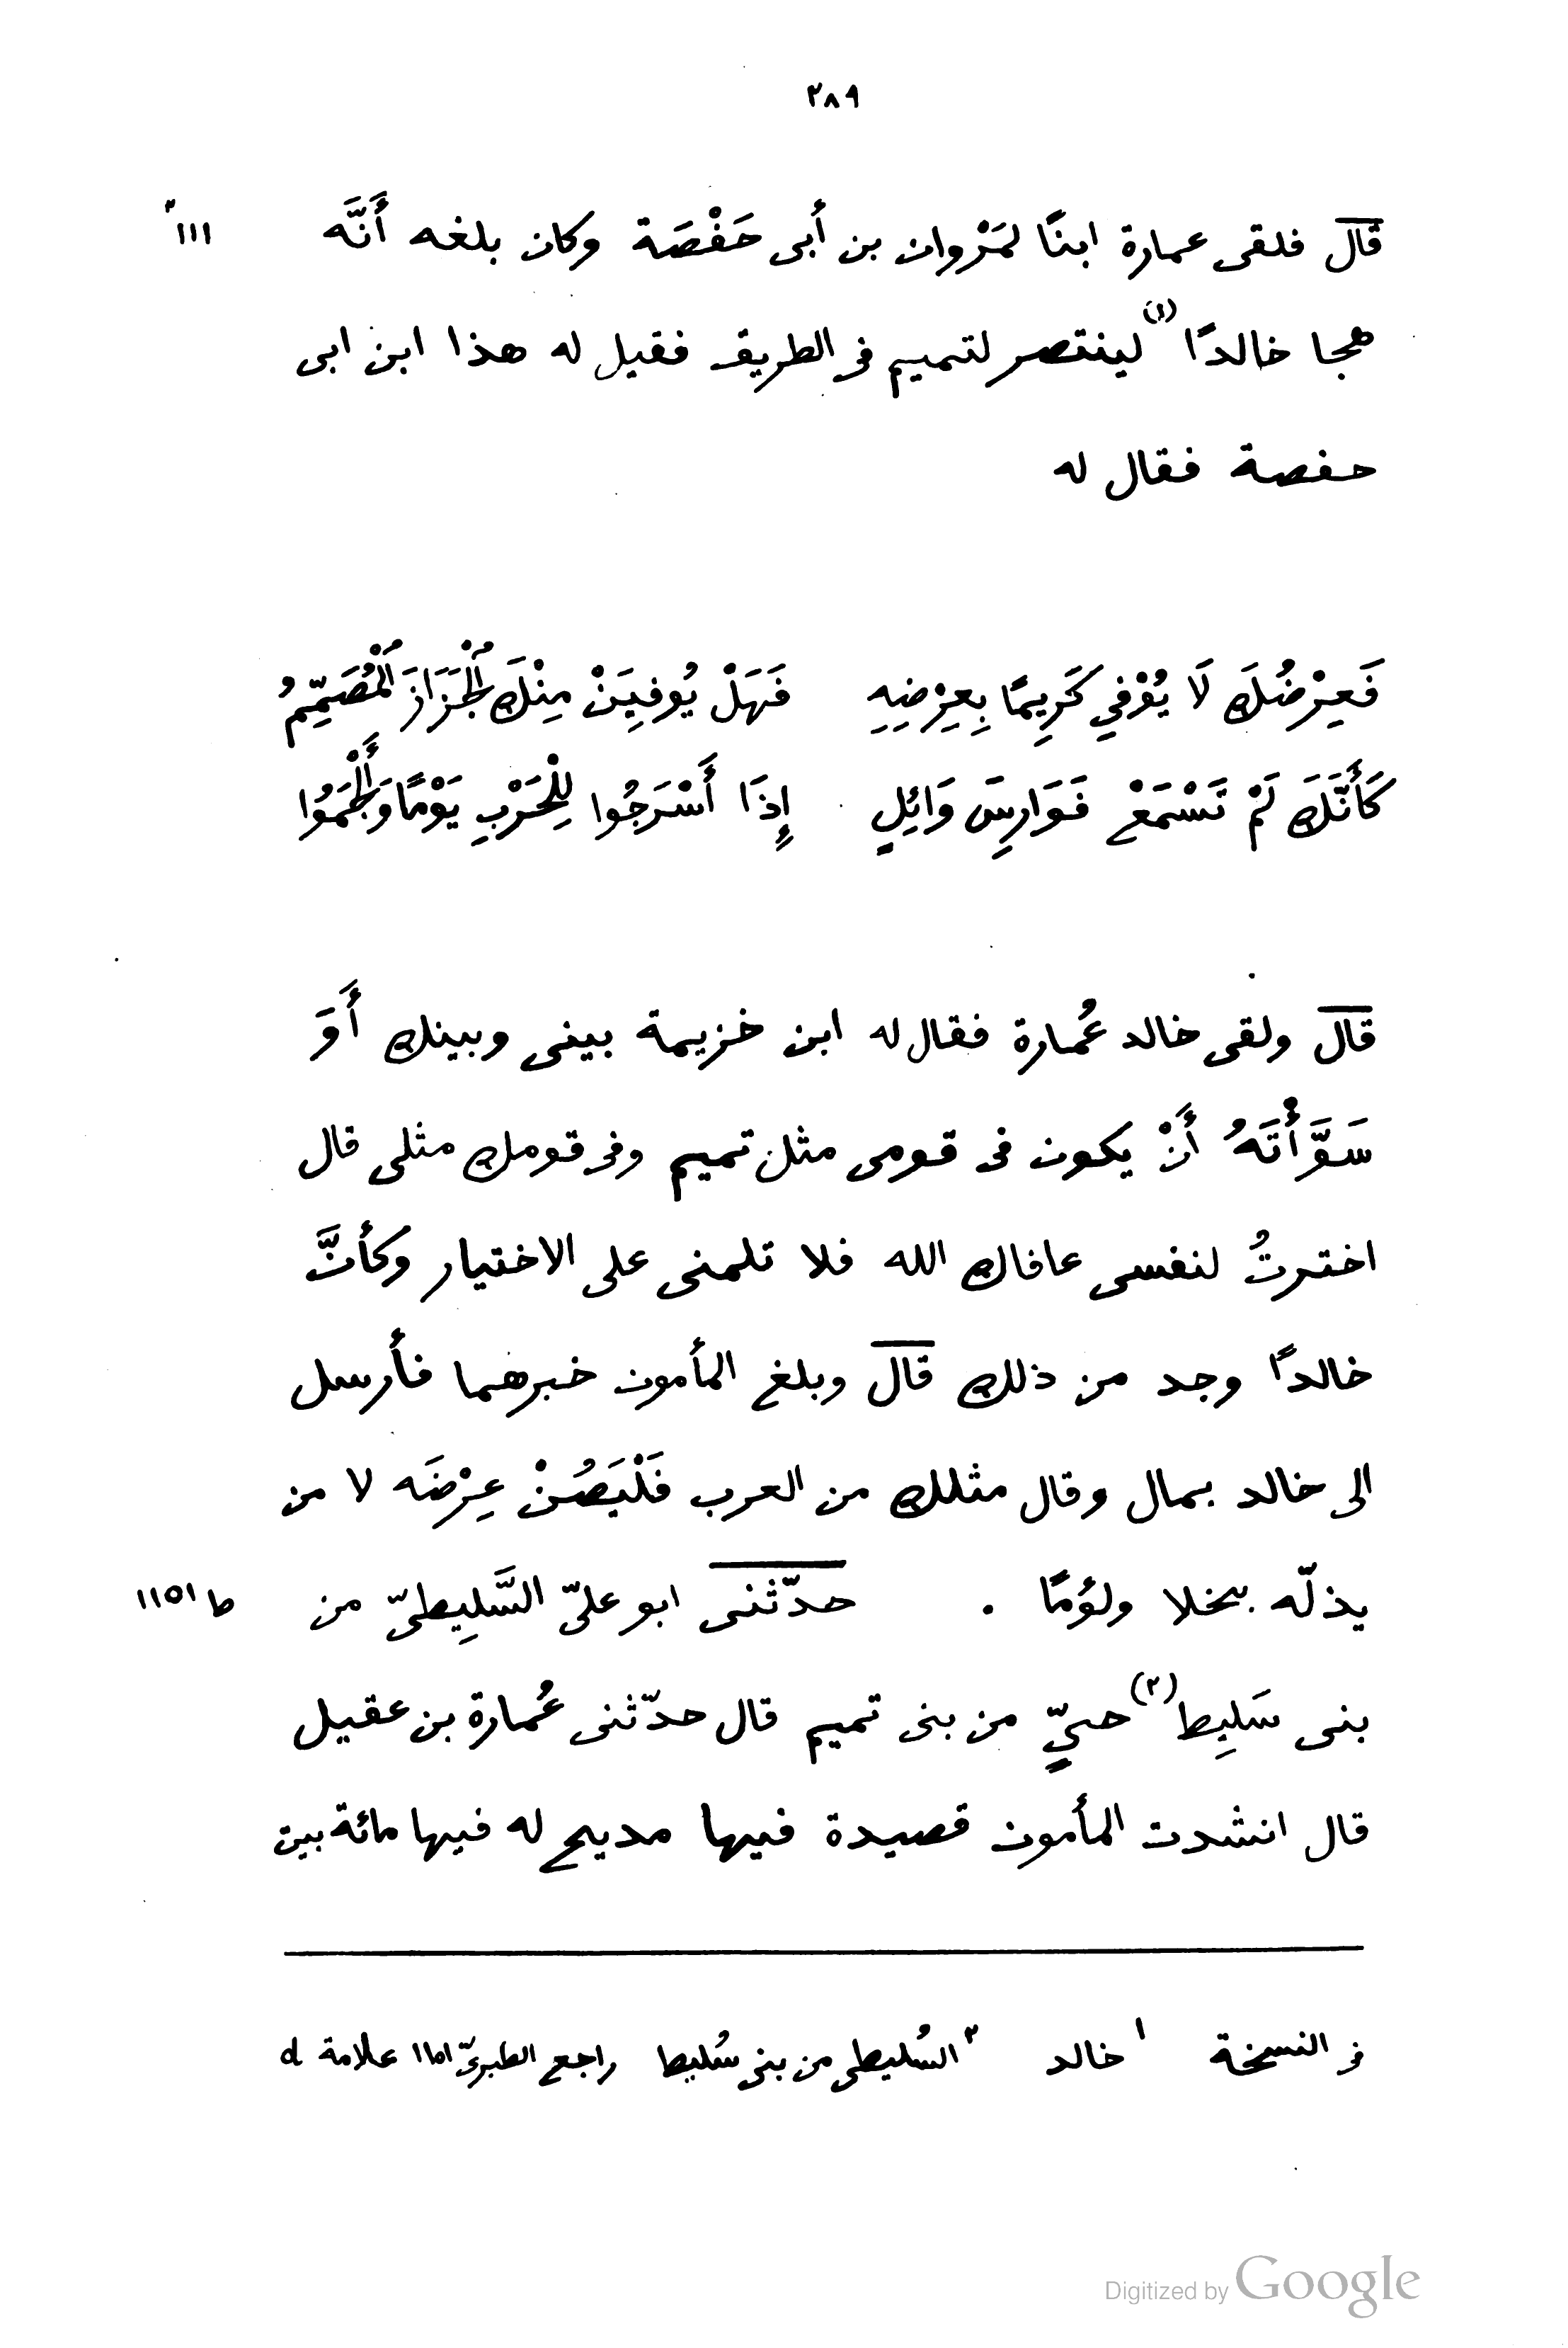 ٢٨٩
قال فلقى عمارة ابنًا لمَرْوان بن أبى حَفْصَة وكان بلغه أَنَّه ١١١٢
هجا خالدًا (١) لينتصر لتميم فى الطريق فقيل له هذا ابن ابى
حفصة فقال له
فَعِرْضُكَ لَا يُوْفي كَرِيمًا بِعِرْضِهِ فَهَلْ يُوفِيَنْ مِنْكَ ٱلْجَزَازَ ٱلْمُصَمِّمُ
كَأَنَّكَ لَمْ تَسْمَعْ فَوَارِسَ وَائِلٍ إِذَا أَسْرَجُوا لِلْحَرْبِ يَوْمًا وَأَلْجَمُوا
قال ولقى خالد عُمارة فقال له ابن خزيمة بينى وبينك أَوَ
سَوَّأْتَهُ أَنْ يكون فى قومى مثل تميم وفى قومك مثلى قال
اخترتُ لنفسى عافاك الله فلا تلمنى على الاختيار وكأنَّ
خالدًا وجد من ذلك قال وبلغ المأمون خبرهما فأرسل
الى خالد بمال وقال مثلك من العرب فَلْيَصُنْ عِرْضَه لا من
يذلّه بخلا ولؤمًا . حدّثنى ابو علىّ السَّلِيطىّ من ط ١١٥١
بنى سَلِيط (٢) حىٍّ من بنى تميم قال حدّثنى عُمارة بن عقيل
قال انشدت المأمون قصيدة فيها مديح له فيها مائة بيت
فى النسخة ١ خالد ٢ السُليطى من بنى سُليط راجع الطبرىّ ١١٥١ علامة d
Digitized by Google